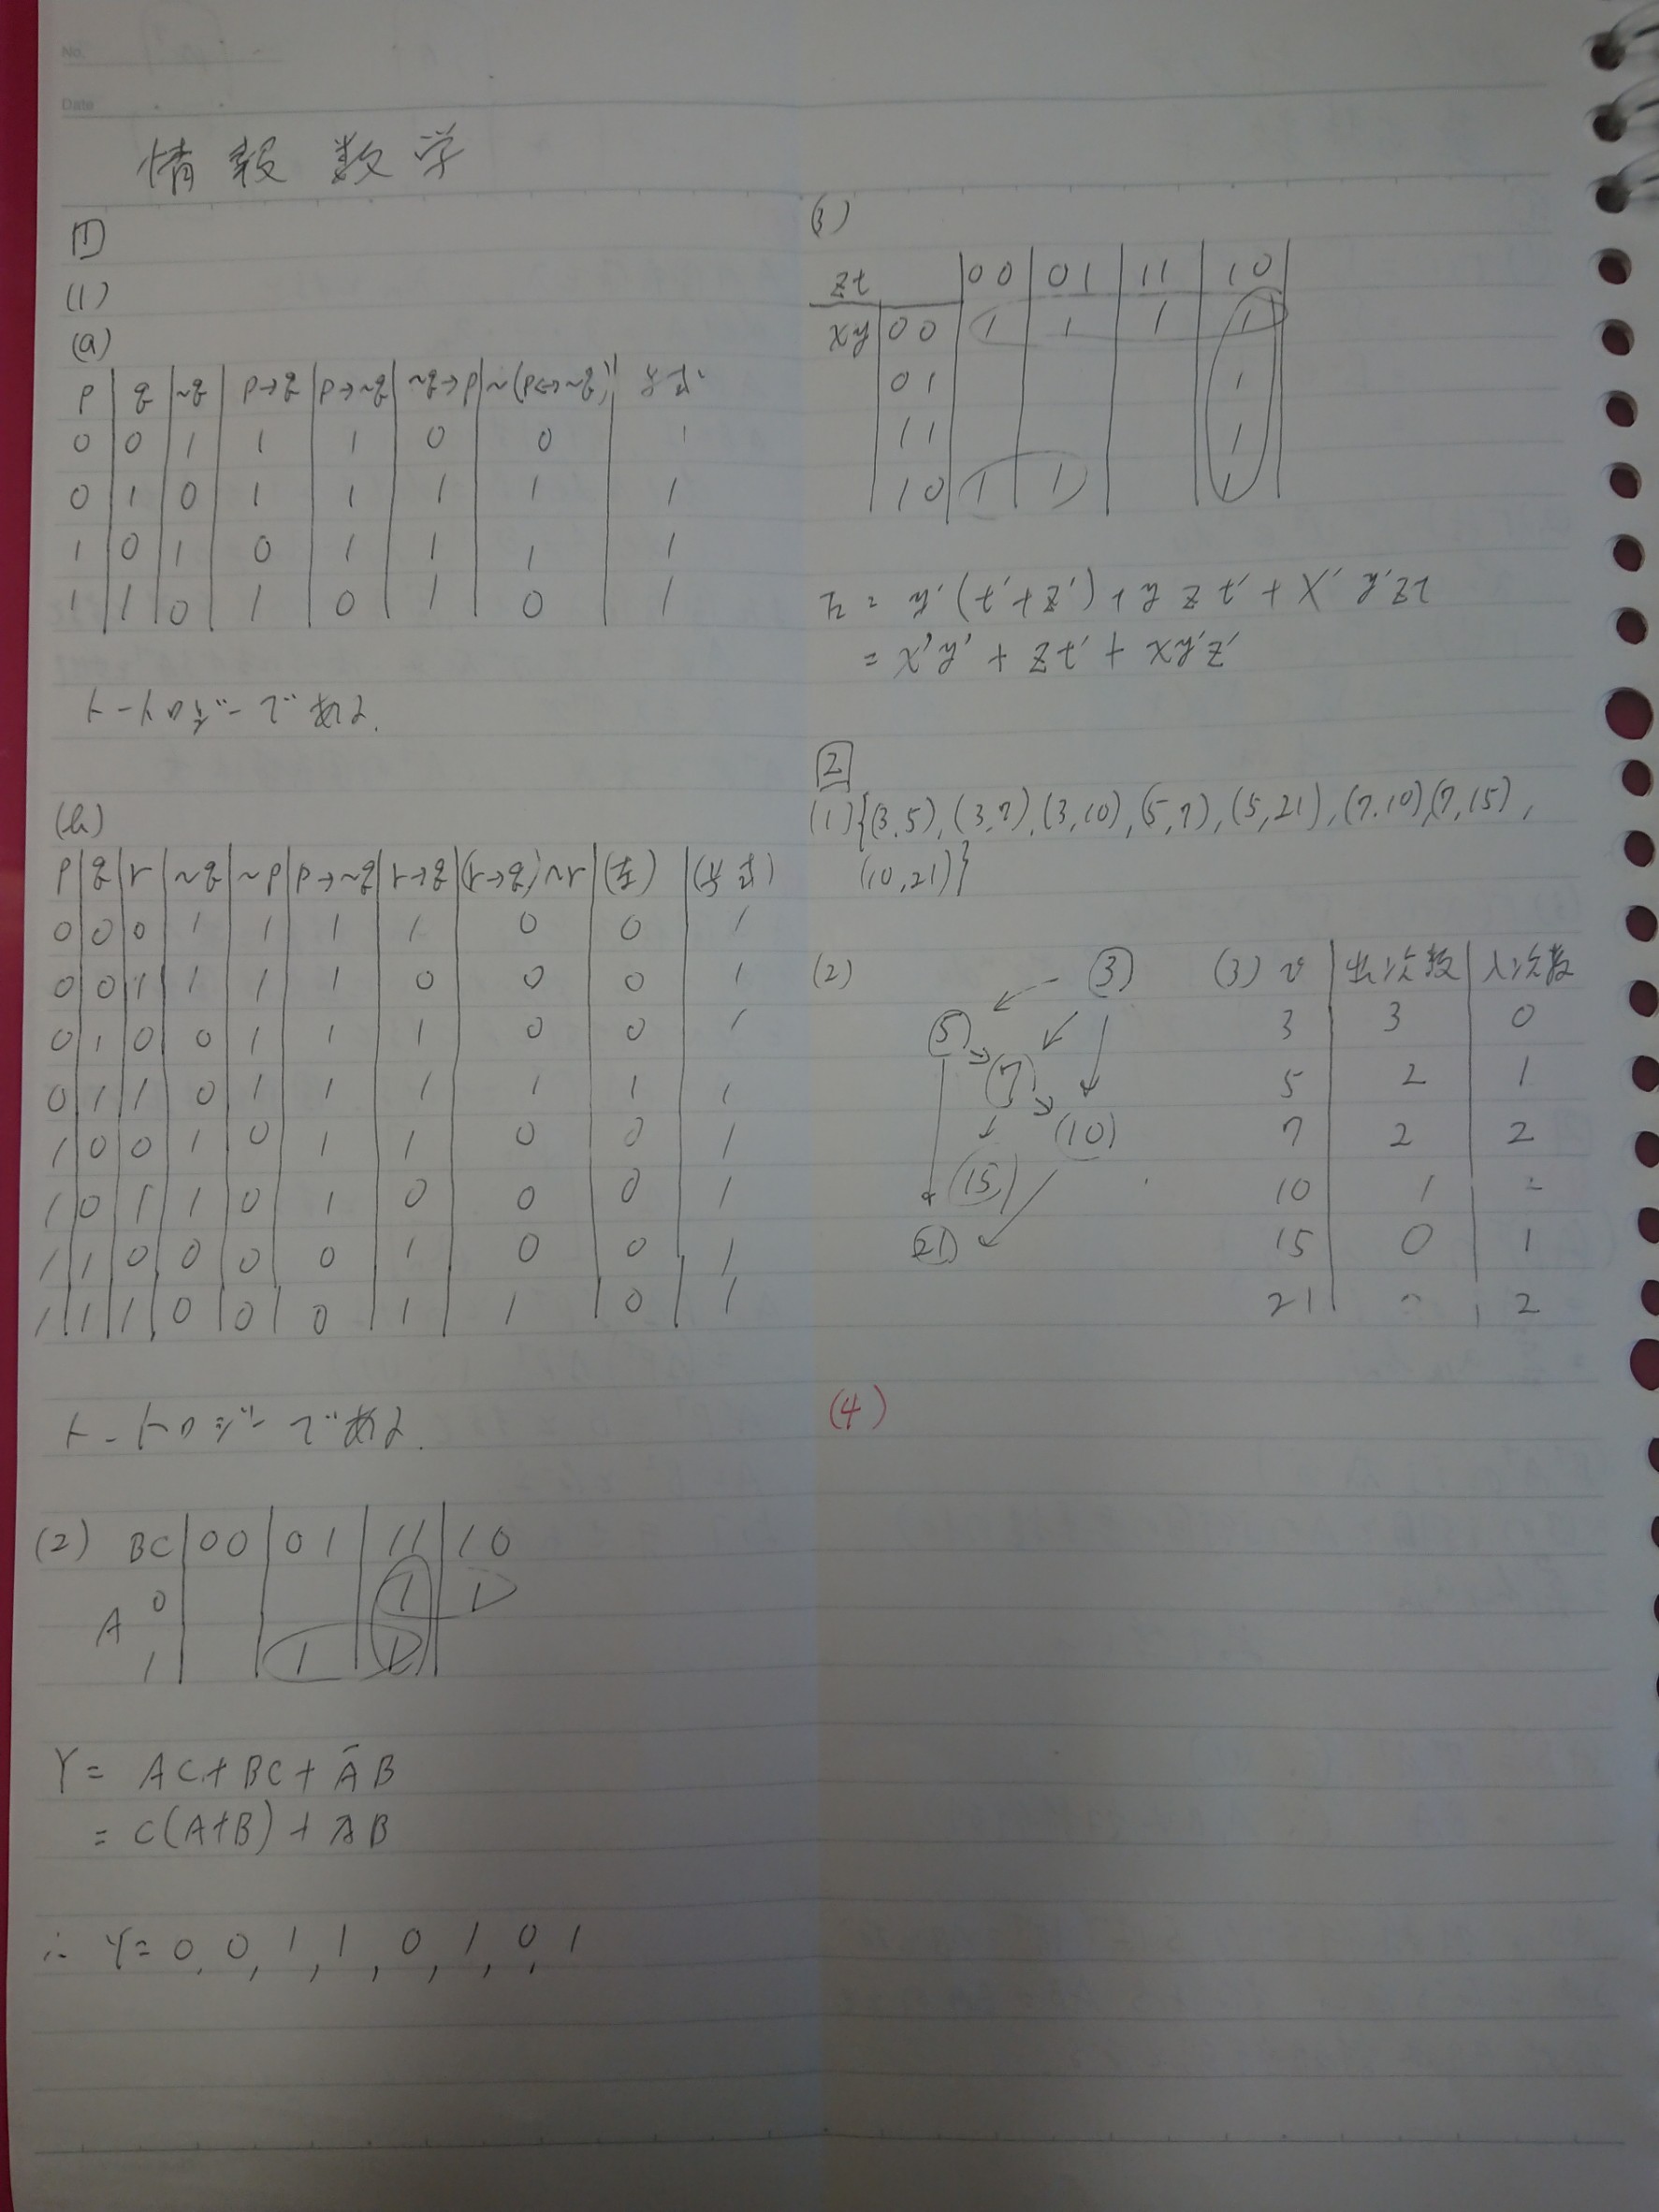 No.
Date
情報数学
1
(1)
(a)
p q ~q p→q p→~q ~q→p ~(p↔~q) 与式
0 0 1 1 1 0 0 1
0 1 0 1 1 1 1 1
1 0 1 0 1 1 1 1
1 1 0 1 0 1 0 1
トートロジーである.
(b)
p q r ~q ~p p→~q r→q (r→q)∧r (左) (与式)
0 0 0 1 1 1 1 0 0 1
0 0 1 1 1 1 0 0 0 1
0 1 0 0 1 1 1 0 0 1
0 1 1 0 1 1 1 1 1 1
1 0 0 1 0 1 1 0 0 1
1 0 1 1 0 1 0 0 0 1
1 1 0 0 0 0 1 0 0 1
1 1 1 0 0 0 1 1 0 1
トートロジーである.
(2) BC 00 01 11 10
0 1 1
A
1 1 1
Y = AC + BC + ĀB
= C(A+B) + ĀB
∴ Y = 0, 0, 1, 1, 0, 1, 0, 1
(3)
zt 00 01 11 10
xy 00 1 1 1 1
01 1
11 1
10 1 1 1
h = y'(t'+z') + y z t' + x' y' z t
= x'y' + zt' + xy'z'
2
(1) {(3,5), (3,7), (3,10), (5,7), (5,21), (7,10), (7,15),
(10,21)}
(2)
3
5
7
10
15
21
(3) v 出次数 入次数
3 3 0
5 2 1
7 2 2
10 1 2
15 0 1
21 0 2
(4)